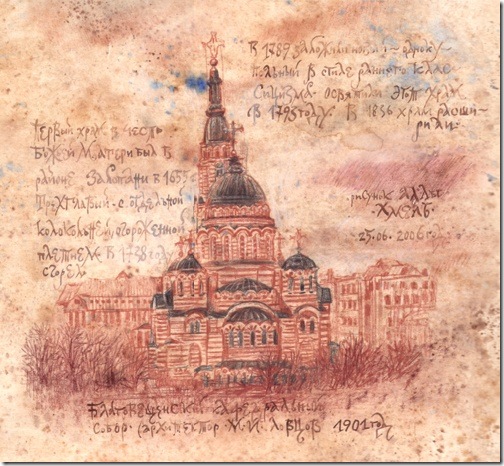 Первый храм в честь
Божьей Матери был в
районе Залопани в 1655
Трехглавый с отдельной
колокольней, огороженной
плетнем. В 1738 году
сгорел
В 1789 заложили новый - одноку-
польный в стиле раннего клас-
сицизма. Освятили этот храм
В 1793 году. В 1836 храм расши-
рили.
рисунок Аллы
25.06.2006 г.
Благовещенский кафедральный
собор. (архитектор М.И. Ловцов 1901 год